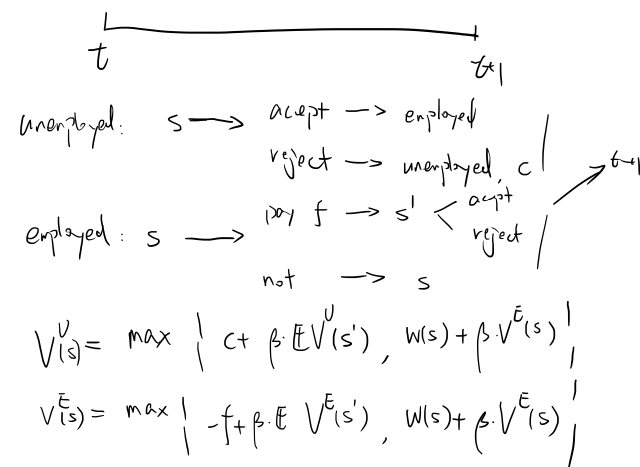 t t+1
unemployed: s → acept → employed
reject → unemployed, c
employed: s → pay f → s' < acpt
reject
→ t+1
not → s
V^U(s) = max { c + β·E V^U(s') , w(s) + β·V^E(s) }
V^E(s) = max { -f + β·E V^E(s') , w(s) + β·V^E(s) }